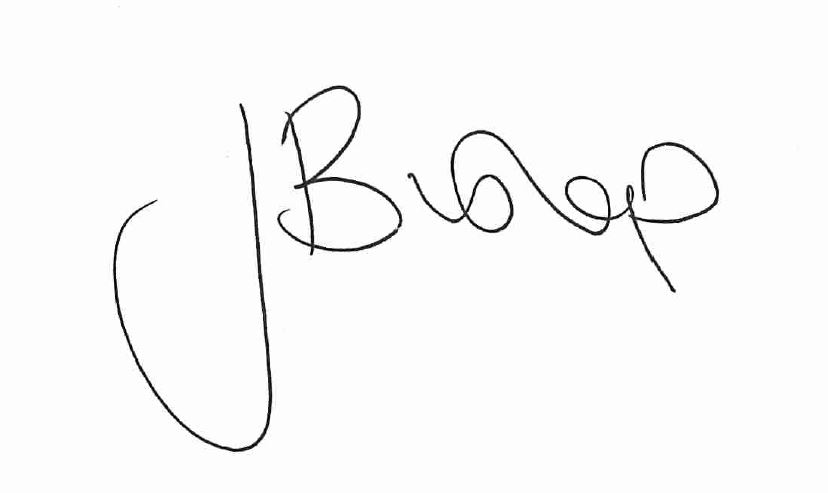 J Bishop